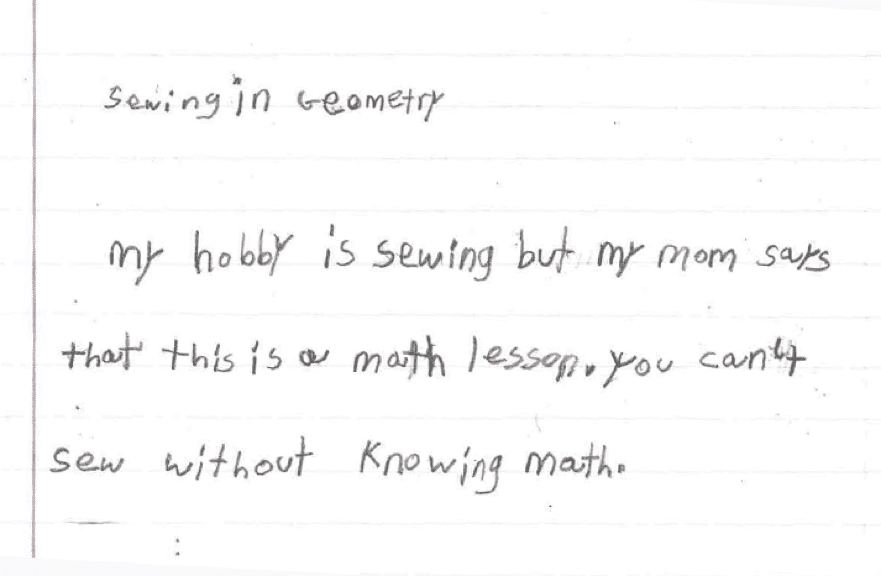 Sewing in Geometry
my hobby is sewing but my mom says
that this is a math lesson. you can't
sew without knowing math.